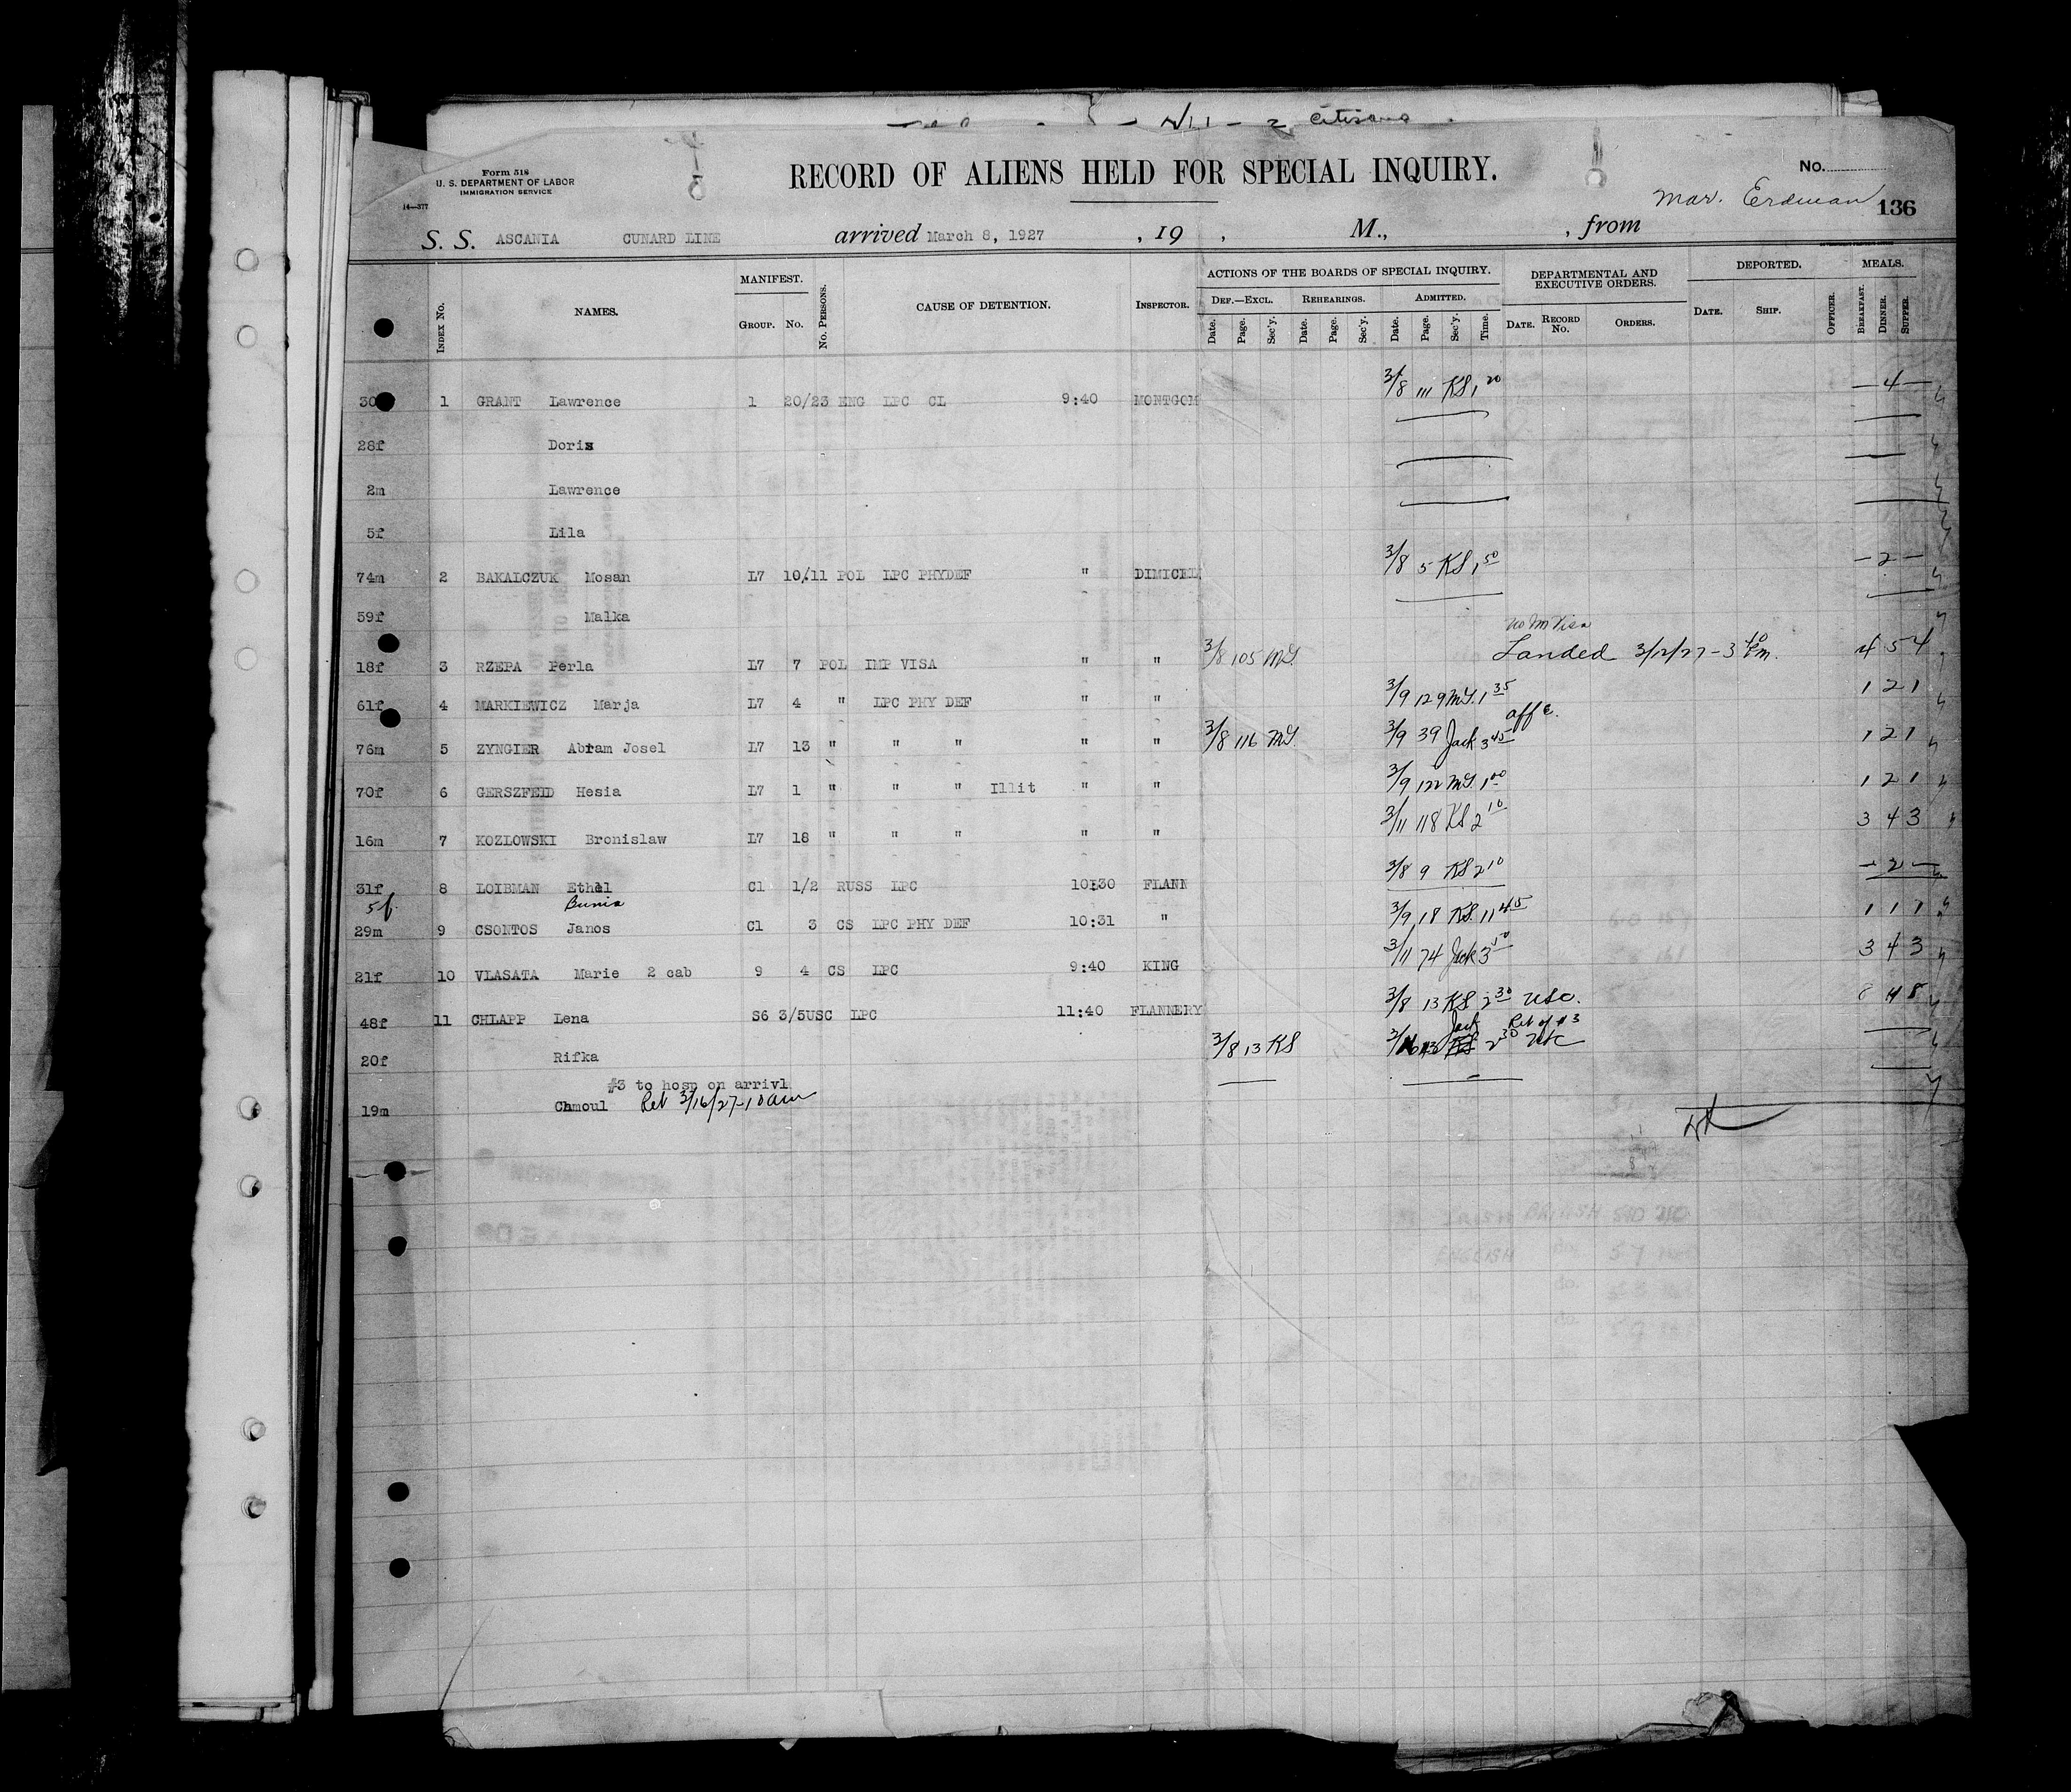 Citizens
Form 518
U. S. DEPARTMENT OF LABOR
IMMIGRATION SERVICE
14—377
RECORD OF ALIENS HELD FOR SPECIAL INQUIRY.
No.
Mar. Erdman 136
S. S. ASCANIA CUNARD LINE arrived March 8, 1927 , 19 , M., , from
INDEX No. NAMES. MANIFEST. GROUP. No. No. PERSONS. CAUSE OF DETENTION. INSPECTOR. ACTIONS OF THE BOARDS OF SPECIAL INQUIRY. DEPARTMENTAL AND EXECUTIVE ORDERS. DEPORTED. MEALS.
DEF.—EXCL. REHEARINGS. ADMITTED.
Date. Page. Sec'y. Date. Page. Sec'y. Date. Page. Sec'y. Time. DATE. RECORD No. ORDERS. DATE. SHIP. OFFICER. BREAKFAST. DINNER. SUPPER.
30 1 GRANT Lawrence 1 20/23 ENG LPC CL 9:40 MONTGOM 3/8 111 KS 1 20 — 4 —
28f Doris
2m Lawrence
5f Lila
74m 2 BAKALCZUK Mosan L7 10/11 POL LPC PHYDEF " DIMICEL 3/8 5 KS 1 50 — 2 —
59f Malka
18f 3 RZEPA Perla L7 7 POL IMP VISA " " 3/8 105 MY. Landed 3/12/27 - 3 40 Pm. 4 5 4
61f 4 MARKIEWICZ Marja L7 4 " LPC PHY DEF " " 3/9 129 MY. 1 35 1 2 1
76m 5 ZYNGIER Abram Josel L7 13 " " " " " 3/8 116 MY. 3/9 39 Jack 3 45 aff c. 1 2 1
70f 6 GERSZFEID Hesia L7 1 " " " Illit " " 3/9 122 MY. 1 00 1 2 1
16m 7 KOZLOWSKI Bronislaw L7 18 " " " " " 3/11 118 KS 2 10 3 4 3
31f 8 LOIBMAN Ethel C1 1/2 RUSS LPC 10:30 FLANN 3/8 9 KS 2 10 — 2 —
5f Bunia
29m 9 CSONTOS Janos C1 3 CS LPC PHY DEF 10:31 " 3/9 18 KS. 11 45 1 1 1
21f 10 VLASATA Marie 2 cab 9 4 CS LPC 9:40 KING 3/11 74 Jack 3 50 3 4 3
48f 11 CHLAPP Lena S6 3/5 USC LPC 11:40 FLANNERY 3/8 13 KS 2 30 USC.
20f Rifka 3/8 13 KS Jack Rel of #3 KS 2 30 USC
#3 to hosp on arrivl
19m Chmoul Ret 3/16/27-10am